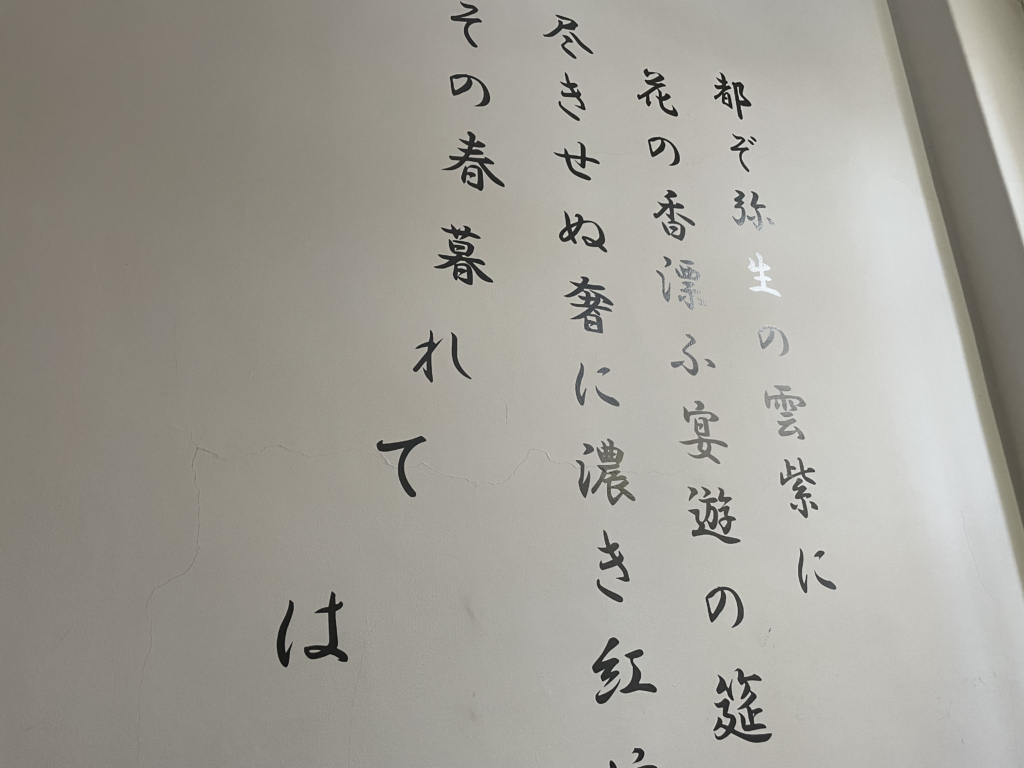 都ぞ弥生の雲紫に
花の香漂ふ宴遊の筵
尽きせぬ奢に濃き紅
その春暮れては